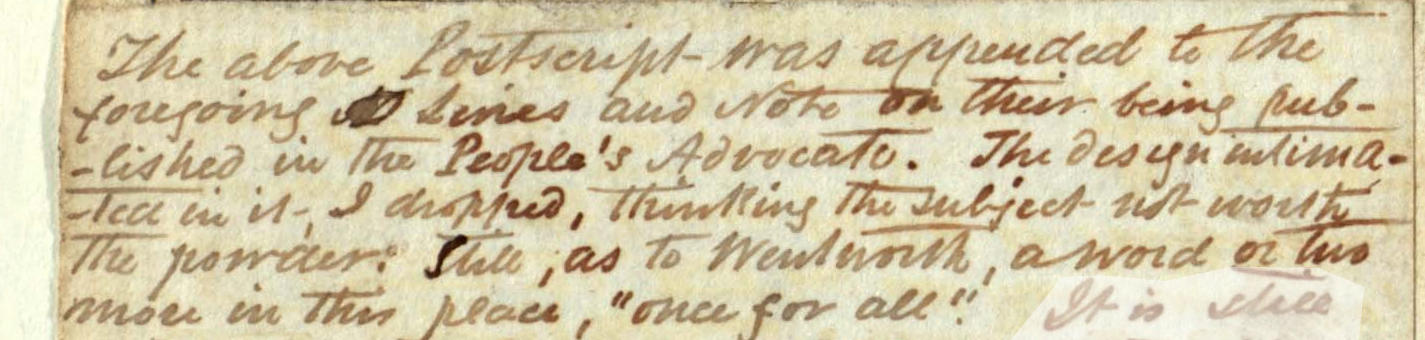 The above Postscript was appended to the
foregoing Lines and Note on their being pub-
-lished in the People's Advocate. The design intima-
-ted in it, I dropped, thinking the subject not worth
the powder. Still, as to Wentworth, a word or two
more in this place, "once for all". It is still